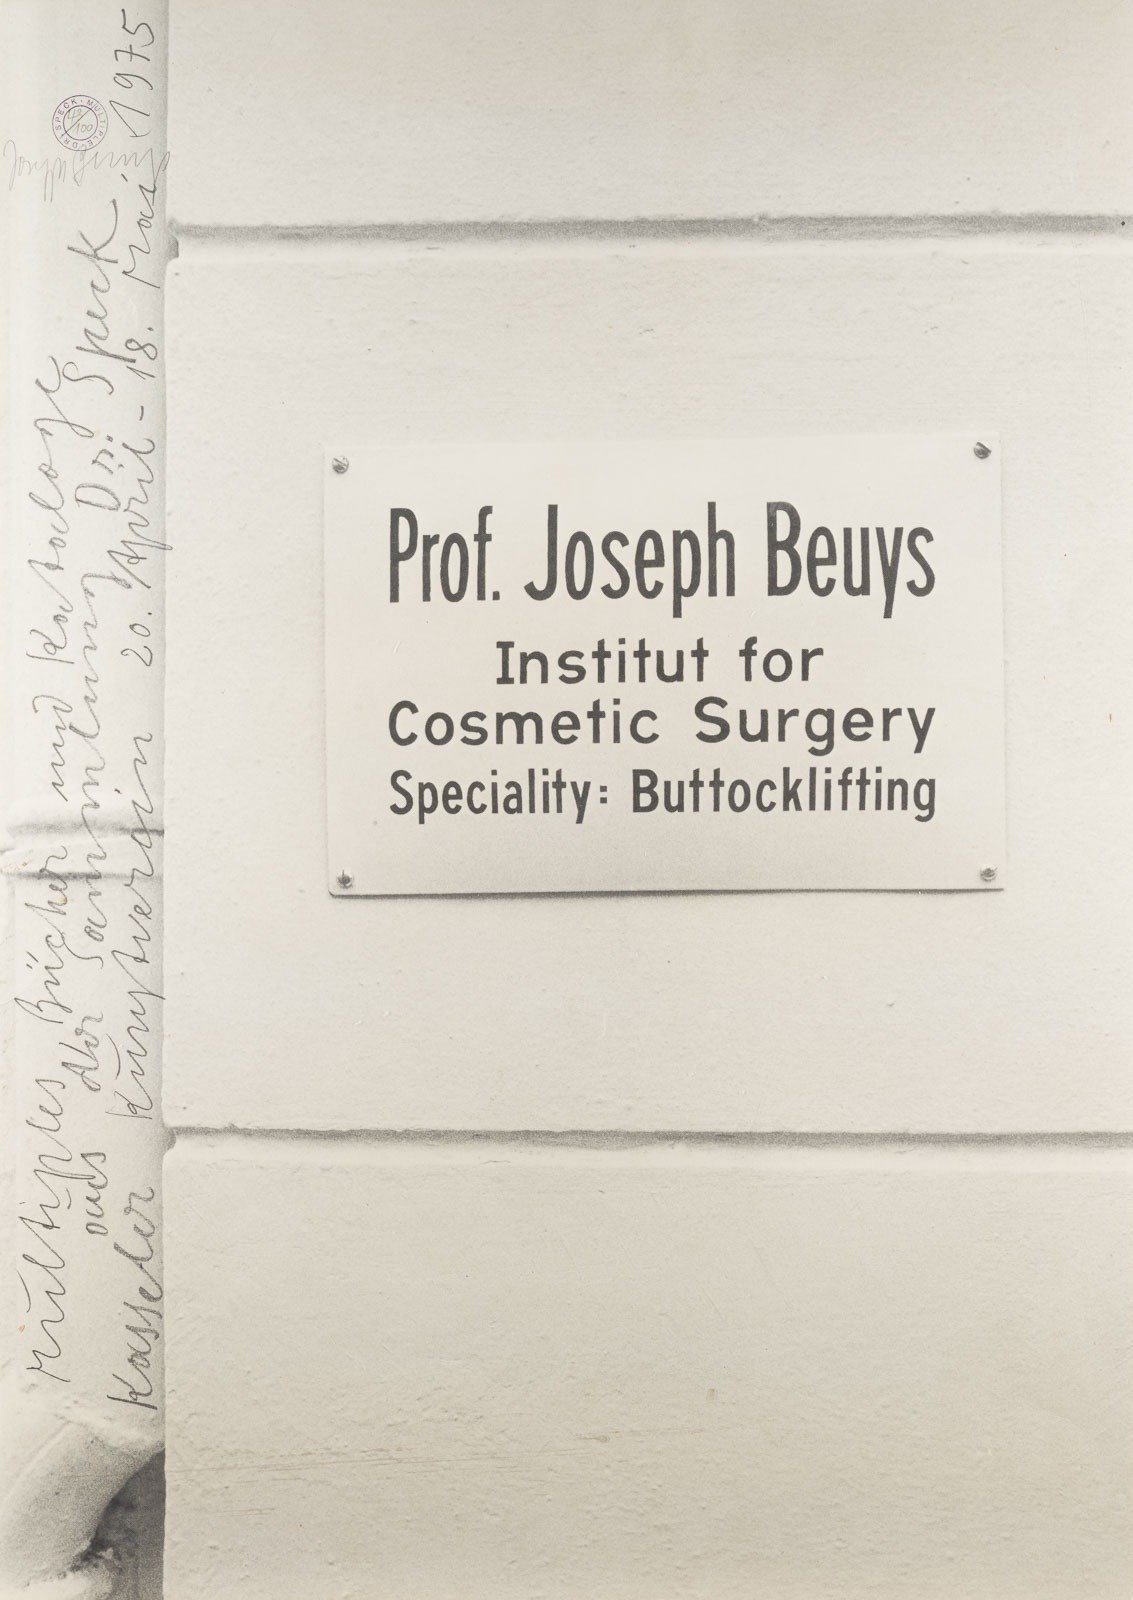 Prof. Joseph Beuys
Institut for
Cosmetic Surgery
Speciality: Buttocklifting
multiples Bücher und Kataloge
aus der Sammlung Dr. Speck
Kasseler Kunstverein 20. April - 18. Mai 1975
DR. SPECK - MULTIPLES
/100